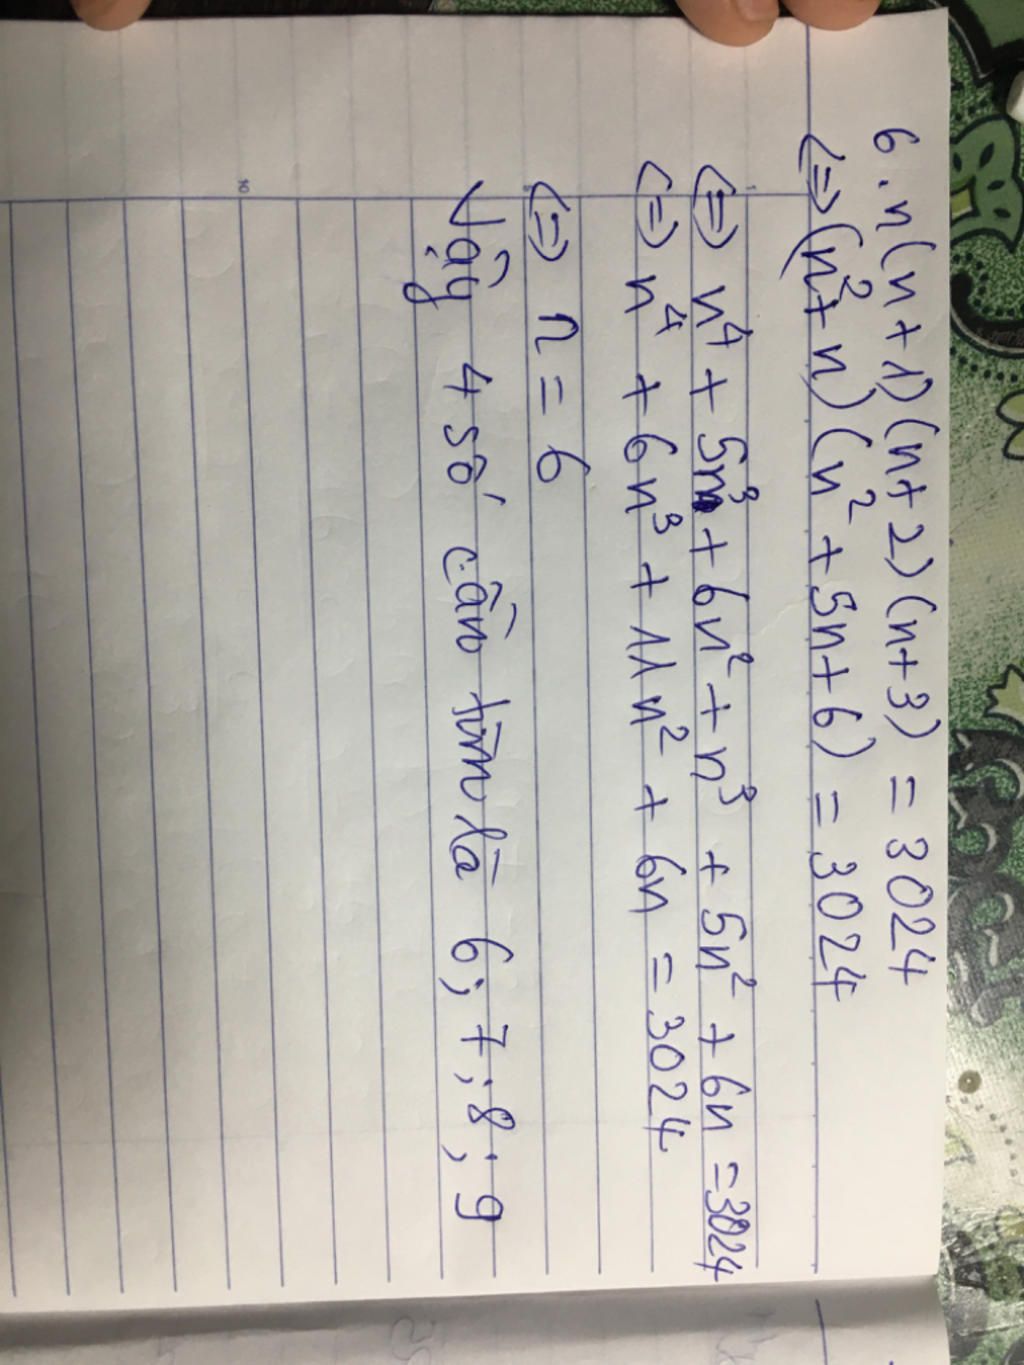 6. n(n+1)(n+2)(n+3) = 3024
<=> (n²+n)(n²+5n+6) = 3024
<=> n⁴ + 5n³ + 6n² + n³ + 5n² + 6n = 3024
<=> n⁴ + 6n³ + 11n² + 6n = 3024
<=> n = 6
Vậy 4 số cần tìm là 6; 7; 8; 9